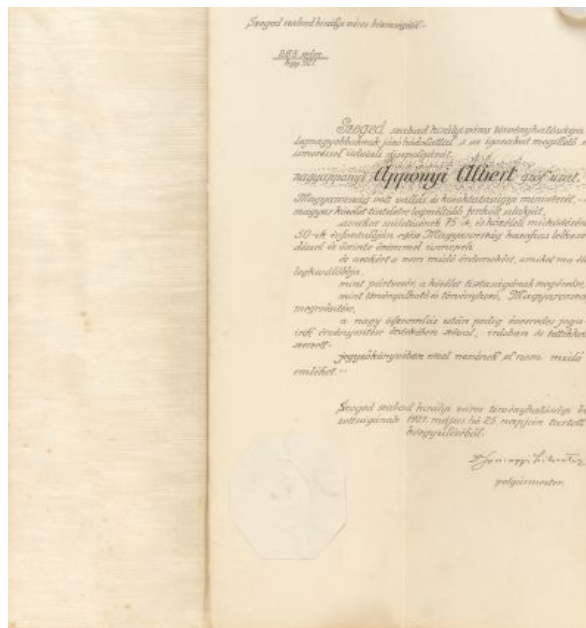 Szeged szabad királyi város közönségétől.
Szeged szabad királyi város törvényhatósága
legnagyobbaknak járó hódolattal s az igazakat megillető
ismeréssel üdvözli díszpolgárát,
nagyapponyi Apponyi Albert gróf urat,
Magyarország volt vallás és közoktatásügyi miniszterét,
magyar közélet tiszteletre legméltóbb férfiúi alakját,
amikor születésének 75-ik, és közéleti működésének
50-ik évfordulóján egész Magyarország hazafias
és őszinte örömmel ünnepli
és azokért a nem múló érdemekért, amiket ma élő
legkiválóbbja,
mint pártvezér, a közélet tisztaságának megőrzése,
mint törvényalkotó és törvényhozó, Magyarország
megerősítése,
a nagy összeomlás után pedig ezeréves joga
érvényesítése érdekében szóval, írásban és tettekkel
szerzett
jegyzőkönyvében örzi nevének el nem múló
emlékét."
Szeged szabad királyi város törvényhatósági
1921. május hó 25. napján tartott
közgyűléséből.
polgármester.